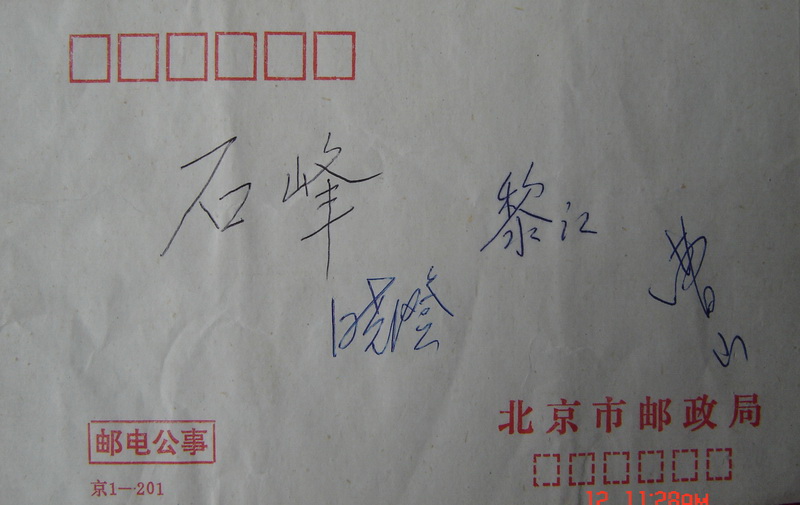 石峰
黎江
曹山
晓
北京市邮政局
邮电公事
京1—201
12 11:28PM